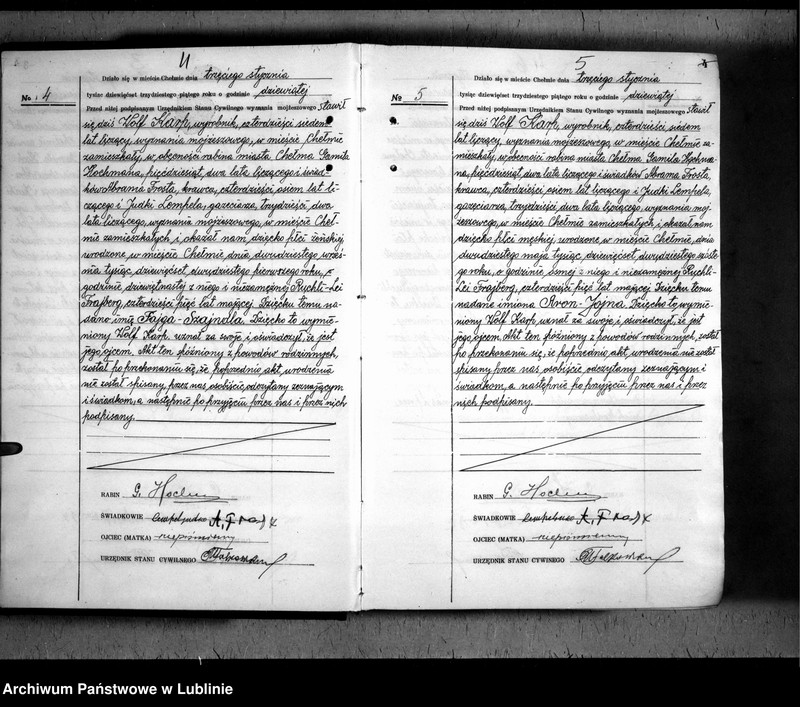 4
Działo się w mieście Chełmie dnia trzeciego stycznia
No. 4
tysiąc dziewięćset trzydziestego piątego roku o godzinie dziewiątej
Przed niżej podpisanym Urzędnikiem Stanu Cywilnego wyznania mojżeszowego stawił
się dziś Wolf Karp, wyrobnik, czterdzieści siedem
lat liczący, wyznania mojżeszowego, w mieście Chełmie
zamieszkały, w obecności rabina miasta Chełma Gamila
Hochmana, pięćdziesiąt dwa lata liczącego i świad-
ków Abrama Frosta, krawca, czterdzieści osiem lat li-
czącego i Judki Lempela, gazeciarza, trzydzieści dwa
lata liczącego, wyznania mojżeszowego, w mieście Cheł-
mie zamieszkałych, i okazał nam, dziecko płci żeńskiej
urodzone, w mieście Chełmie, dnia dwudziestego wrześ-
nia tysiąc, dziewięćset, dwudziestego pierwszego roku, o
godzinie dziewiętnastej z niego i niezamężnej Ruchli-Lei
Frajberg, czterdzieści pięć lat mającej. Dziecku temu na-
dano imię Fajga-Szajndla. Dziecko to wymie-
niony Wolf Karp uznał za swoje i oświadczył, że jest
jego ojcem. Akt ten opóźniony z powodów rodzinnych,
został po przekonaniu się, że poprzednio akt, urodzenia
nie został spisany, przez nas, osobiście odczytany zeznającym
i świadkom, a następnie po przyjęciu przez nas i przez nich
podpisany.
RABIN G. Hochman
ŚWIADKOWIE
OJCIEC (MATKA) niepiśmienny
URZĘDNIK STANU CYWILNEGO
5
Działo się w mieście Chełmie dnia trzeciego stycznia
No 5
tysiąc dziewięćset trzydziestego piątego roku o godzinie dziewiątej
Przed niżej podpisanym Urzędnikiem Stanu Cywilnego wyznania mojżeszowego stawił
się dziś Wolf Karp, wyrobnik, czterdzieści siedem
lat liczący, wyznania mojżeszowego, w mieście Chełmie za-
mieszkały, w obecności rabina miasta Chełma Gamila Hochma-
na, pięćdziesiąt, dwa lata liczącego i świadków Abrama Frosta,
krawca, czterdzieści osiem lat liczącego i Judki Lempela,
gazeciarza, trzydzieści dwa lata liczącego, wyznania moj-
żeszowego, w mieście Chełmie zamieszkałych, i okazał nam
dziecko płci męskiej, urodzone, w mieście Chełmie, dnia
dwudziestego maja tysiąc, dziewięćset, dwudziestego szóste-
go roku, o godzinie ósmej z niego i niezamężnej Ruchli-
Lei Frajberg, czterdzieści pięć lat mającej. Dziecku temu
nadano imiona Aron-Jojna. Dziecko to, wymie-
niony Wolf Karp, uznał za swoje i oświadczył, że jest
jego, ojcem. Akt ten, późniony z powodów rodzinnych, został
po przekonaniu się, że poprzednio, akt, urodzenia nie został
spisany przez nas, osobiście odczytany zeznającym i
świadkom, a następnie po przyjęciu przez nas i przez
nich podpisany.
RABIN G. Hochman
ŚWIADKOWIE
OJCIEC (MATKA) niepiśmienny
URZĘDNIK STANU CYWINEGO
Archiwum Państwowe w Lublinie